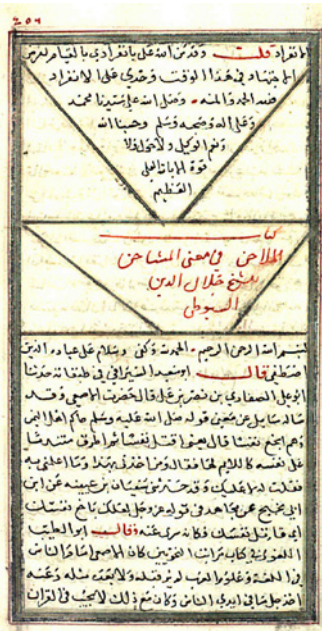 الانفراد قلت وقد من الله على بانفرادي بالقيام بفرض
الاجتهاد في هذا الوقت وحدي على الانفراد
فلله الحمد والمنه وصلى الله على سيدنا محمد
وعلى اله وصحبه وسلم وحسبنا الله
ونعم الوكيل ولا حول ولا
قوة الا بالله العلي
العظيم
كتاب
الملاحن في معنى المشاحن
للشيخ جلال الدين
السيوطي
بسم الله الرحمن الرحيم الحمد لله وكفى وسلام على عباده الذين
اصطفى قال ابو سعيد السيرافي في طبقاته حدثنا
ابو علي الصفاري بن نصر بن علي قال حضرت الاصمعي وقد
ساله سايل عن معنى قوله صلى الله عليه وسلم جاكم اهل اليمن
وهم ابخع نفسا قال يعني اقتل نفسا ثم اطرق متندما
على نفسه كاللايم لها فقال ومن اخذني بهذا وما علمي به
فقلت له لا عليك وقد حدثني سفيان بن عيينه عن ابن
ابي نجيح عن مجاهد في قوله عز وجل لعلك باخع نفسك
اي قاتل نفسك فكانه سري عنه وقال ابو الطيب
اللغوي في كتاب مراتب النحويين كان الاصمعي
في اللغة
في ايدي الناس وكان مع ذلك لا يجيب في القران